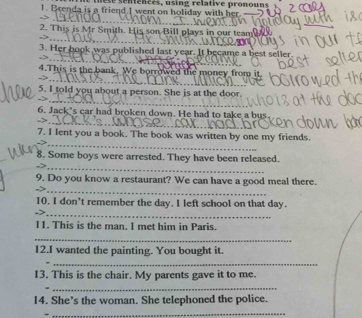 these sentences, using relative pronouns
1. Brenda is a friend. I went on holiday with her.
-> Brenda whom I went on holiday with is
2. This is Mr Smith. His son Bill plays in our team
-> This is Mr Smith whose plays in our
3. Her book was published last year. It became a best seller.
-> Her book became best seller
4. This is the bank. We borrowed the money from it.
-> This is the bank which we borrowed the
5. I told you about a person. She is at the door.
-> I told you who is at the doo
6. Jack's car had broken down. He had to take a bus.
-> Jack's whose car had broken down
7. I lent you a book. The book was written by one my friends.
->
8. Some boys were arrested. They have been released.
->
9. Do you know a restaurant? We can have a good meal there.
->
10. I don't remember the day. I left school on that day.
->
11. This is the man. I met him in Paris.
12. I wanted the painting. You bought it.
-
13. This is the chair. My parents gave it to me.
-
14. She's the woman. She telephoned the police.
-